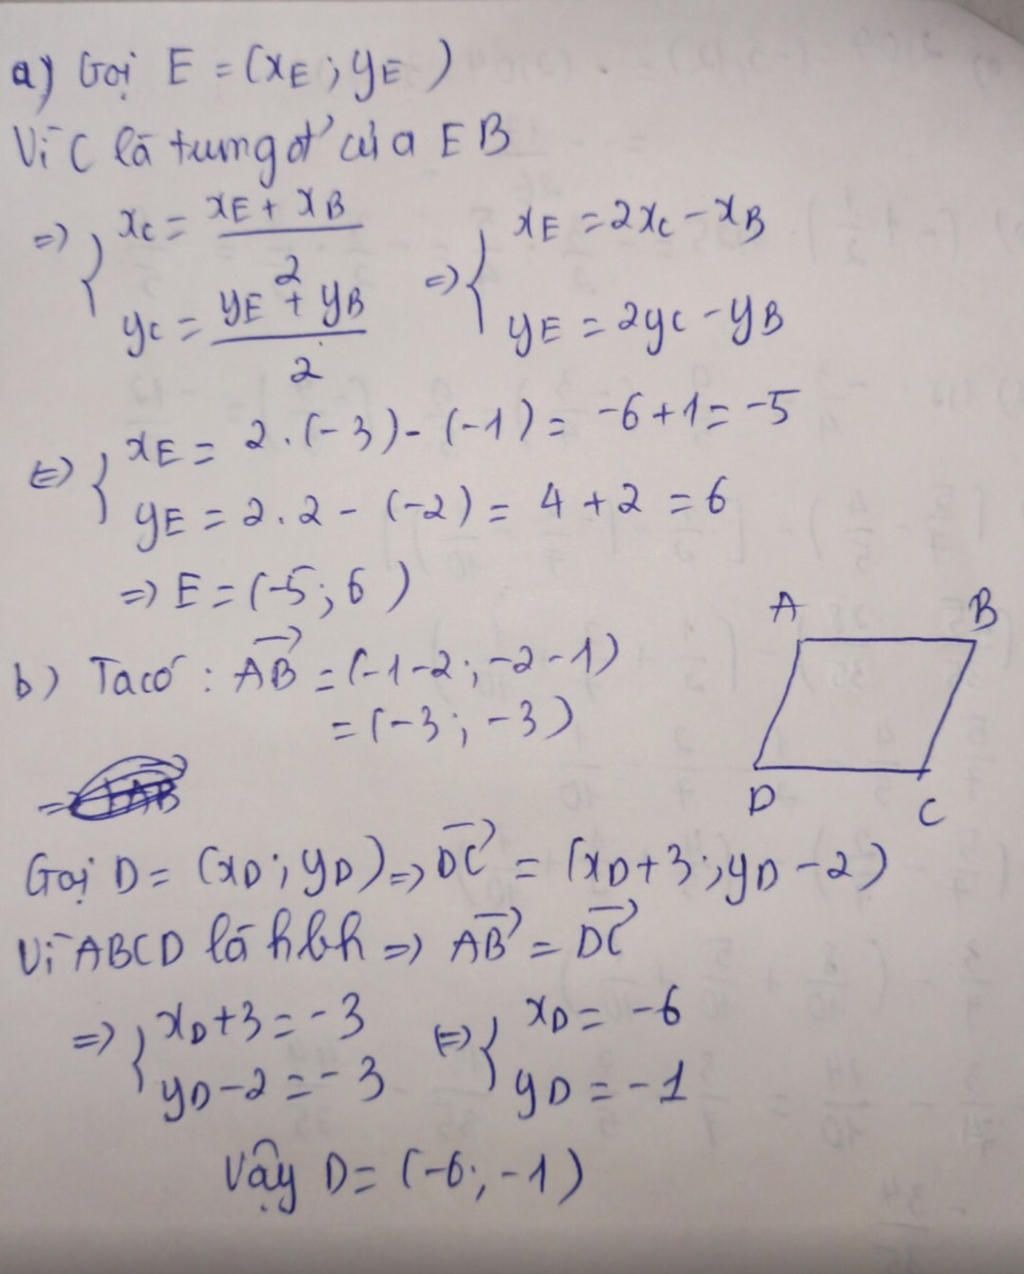 a) Gọi E = (xE ; yE)
Vì C là trung đ' của EB
=> { xC = (xE + xB)/2 => { xE = 2xC - xB
yC = (yE + yB)/2 yE = 2yC - yB
<=> { xE = 2.(-3) - (-1) = -6+1 = -5
yE = 2.2 - (-2) = 4 + 2 = 6
=> E = (-5; 6)
A B
b) Ta có : AB→ = (-1-2; -2-1)
= (-3; -3)
D C
Gọi D = (xD ; yD) => DC→ = (xD+3; yD-2)
Vì ABCD là hbh => AB→ = DC→
=> { xD+3 = -3 <=> { xD = -6
yD-2 = -3 yD = -1
Vậy D = (-6; -1)